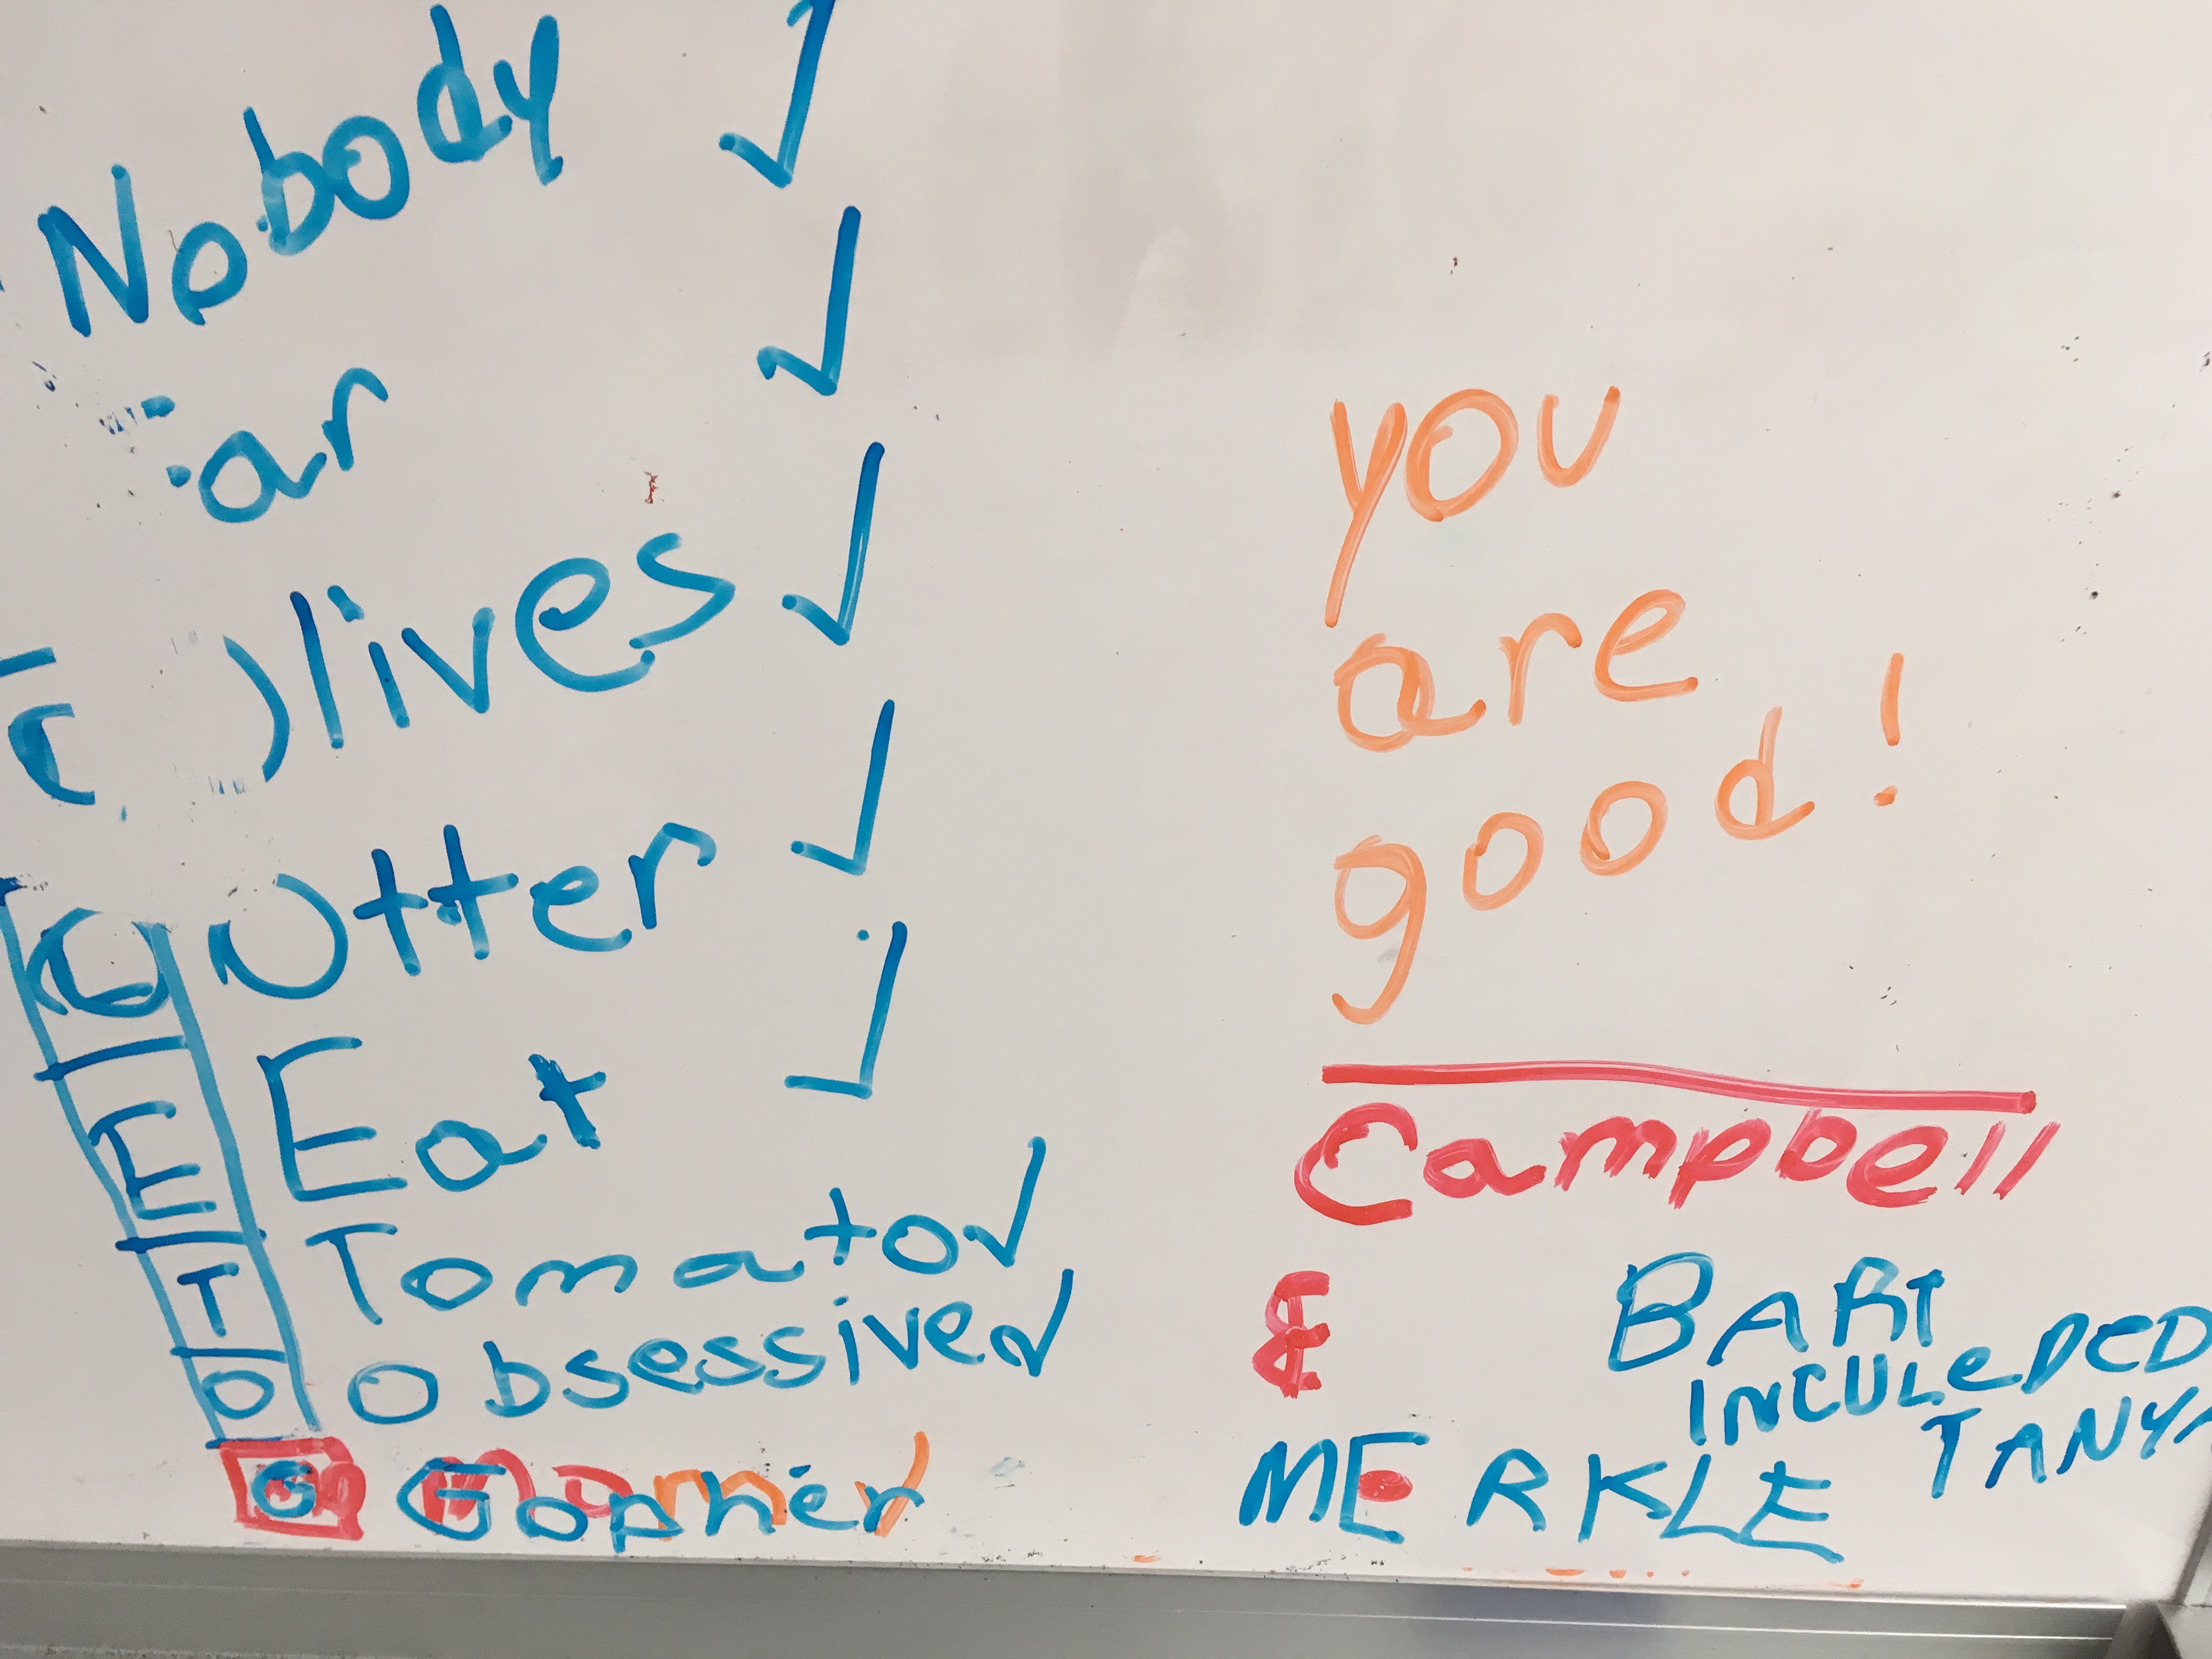 Nobody ✓
ar ✓
Olives ✓
Utter ✓
E Eat ✓
T Tomato ✓
O Obsessived ✓
G Gopher ✓
you
are
good!
Campbell
&
MERKLE
BART
INCULeDED
TANYA